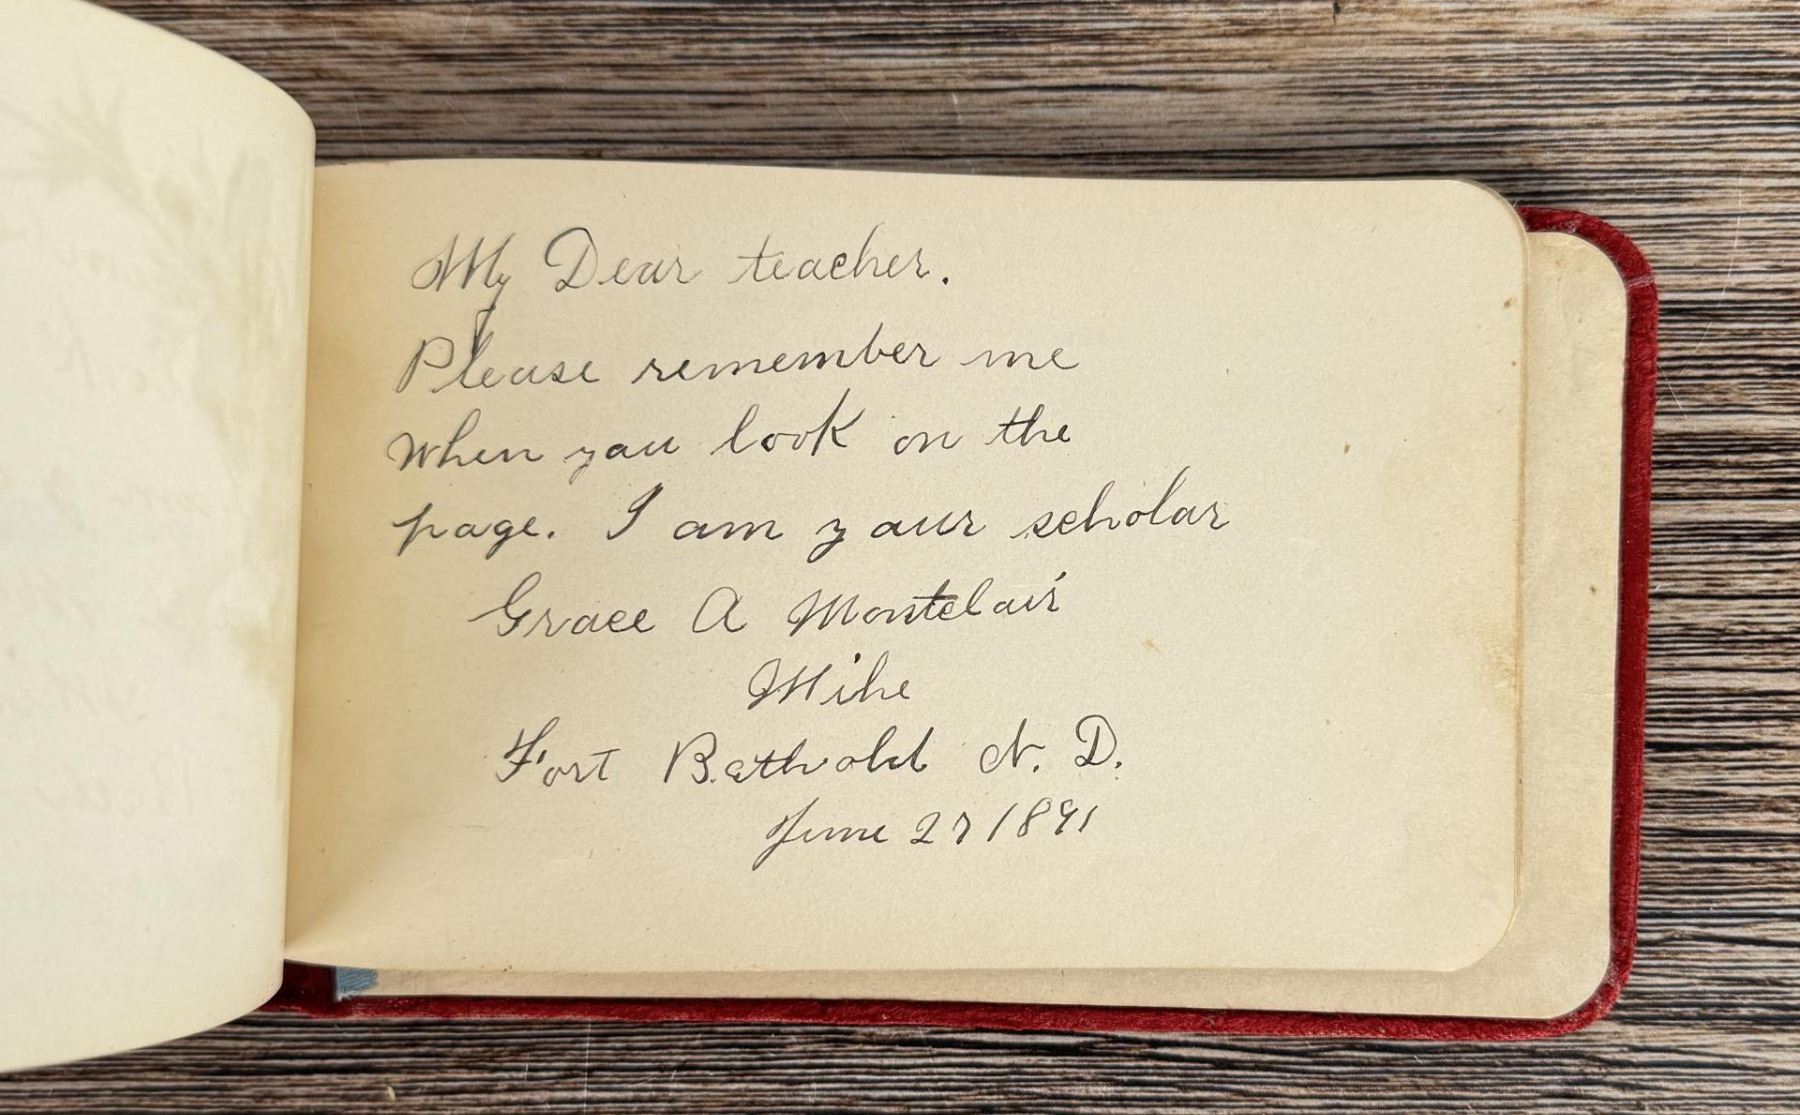 My Dear teacher.
Please remember me
when you look on the
page. I am your scholar
Grace A Montclair
Mihe
Fort Bethold N. D.
June 27 1891